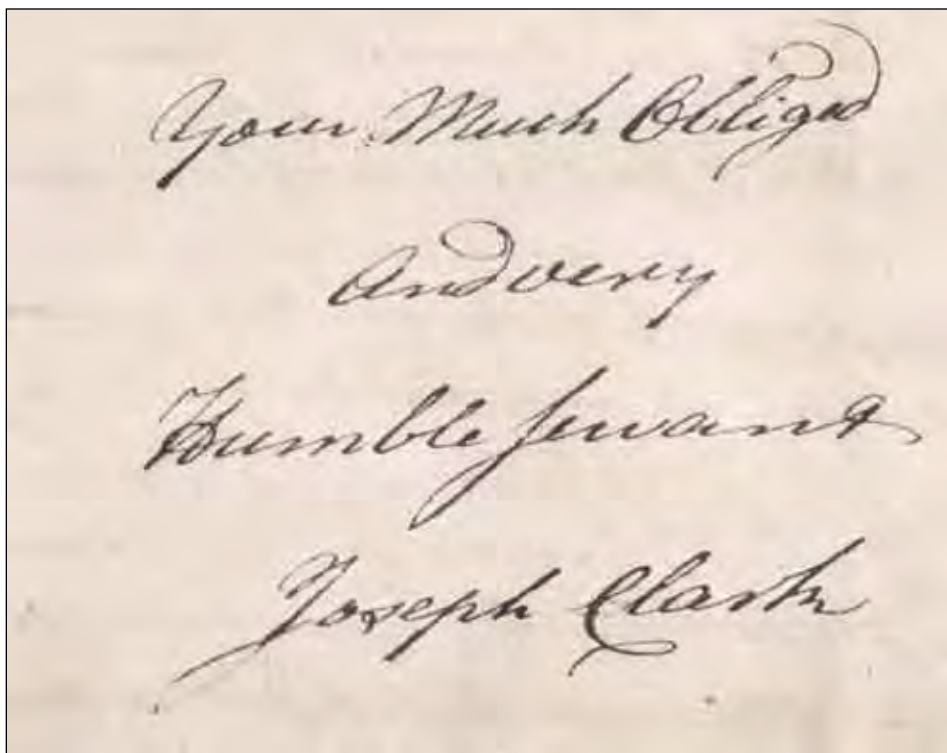 Your Much Obliged
And very
Humble servant
Joseph Clark